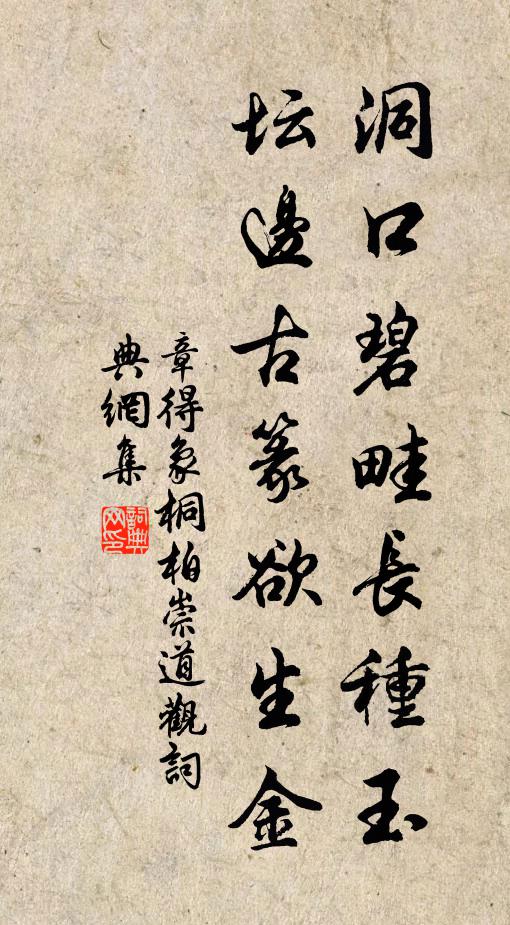 洞口碧畦長種玉
坛邊古篆欲生金
章得象桐柏崇道觀詞
典網集
詞典网印